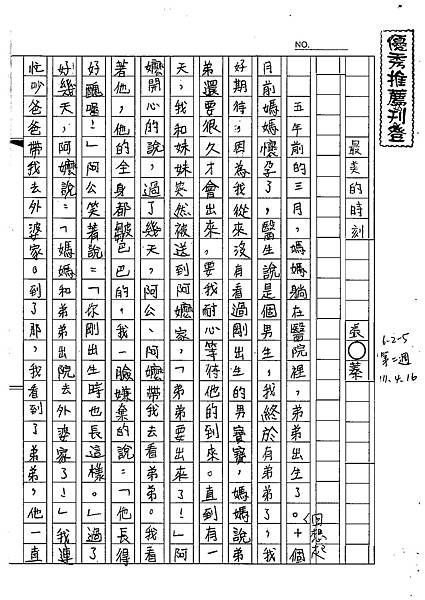 優秀推薦刊登
NO.
6-2-5
第二週
11.4.16
最美的時刻
張○蓁
五年前的三月，媽媽躺在醫院裡，弟弟出生了。十個
(回想起
月前媽媽懷孕了，醫生說是個男生，我終於有弟弟了。我
好期待，因為我從來沒有看過剛出生的男寶寶，媽媽說弟
弟還要很久才會出來，要我耐心等待他的到來。直到有一
天，我和妹妹突然被送到阿嬤家，「弟弟要出來了！」阿
嬤開心的說，過了幾天，阿公、阿嬤帶我去看弟弟。我看
著他，他的全身都皺巴巴的，我一臉嫌棄的說：「他長得
好醜喔！」阿公笑著說：「你剛出生時也長這樣。」過了
好幾天，阿嬤說：「媽媽和弟弟出院去外婆家了！」我連
忙吵爸爸帶我去外婆家。到了那，我看到了弟弟，他一直